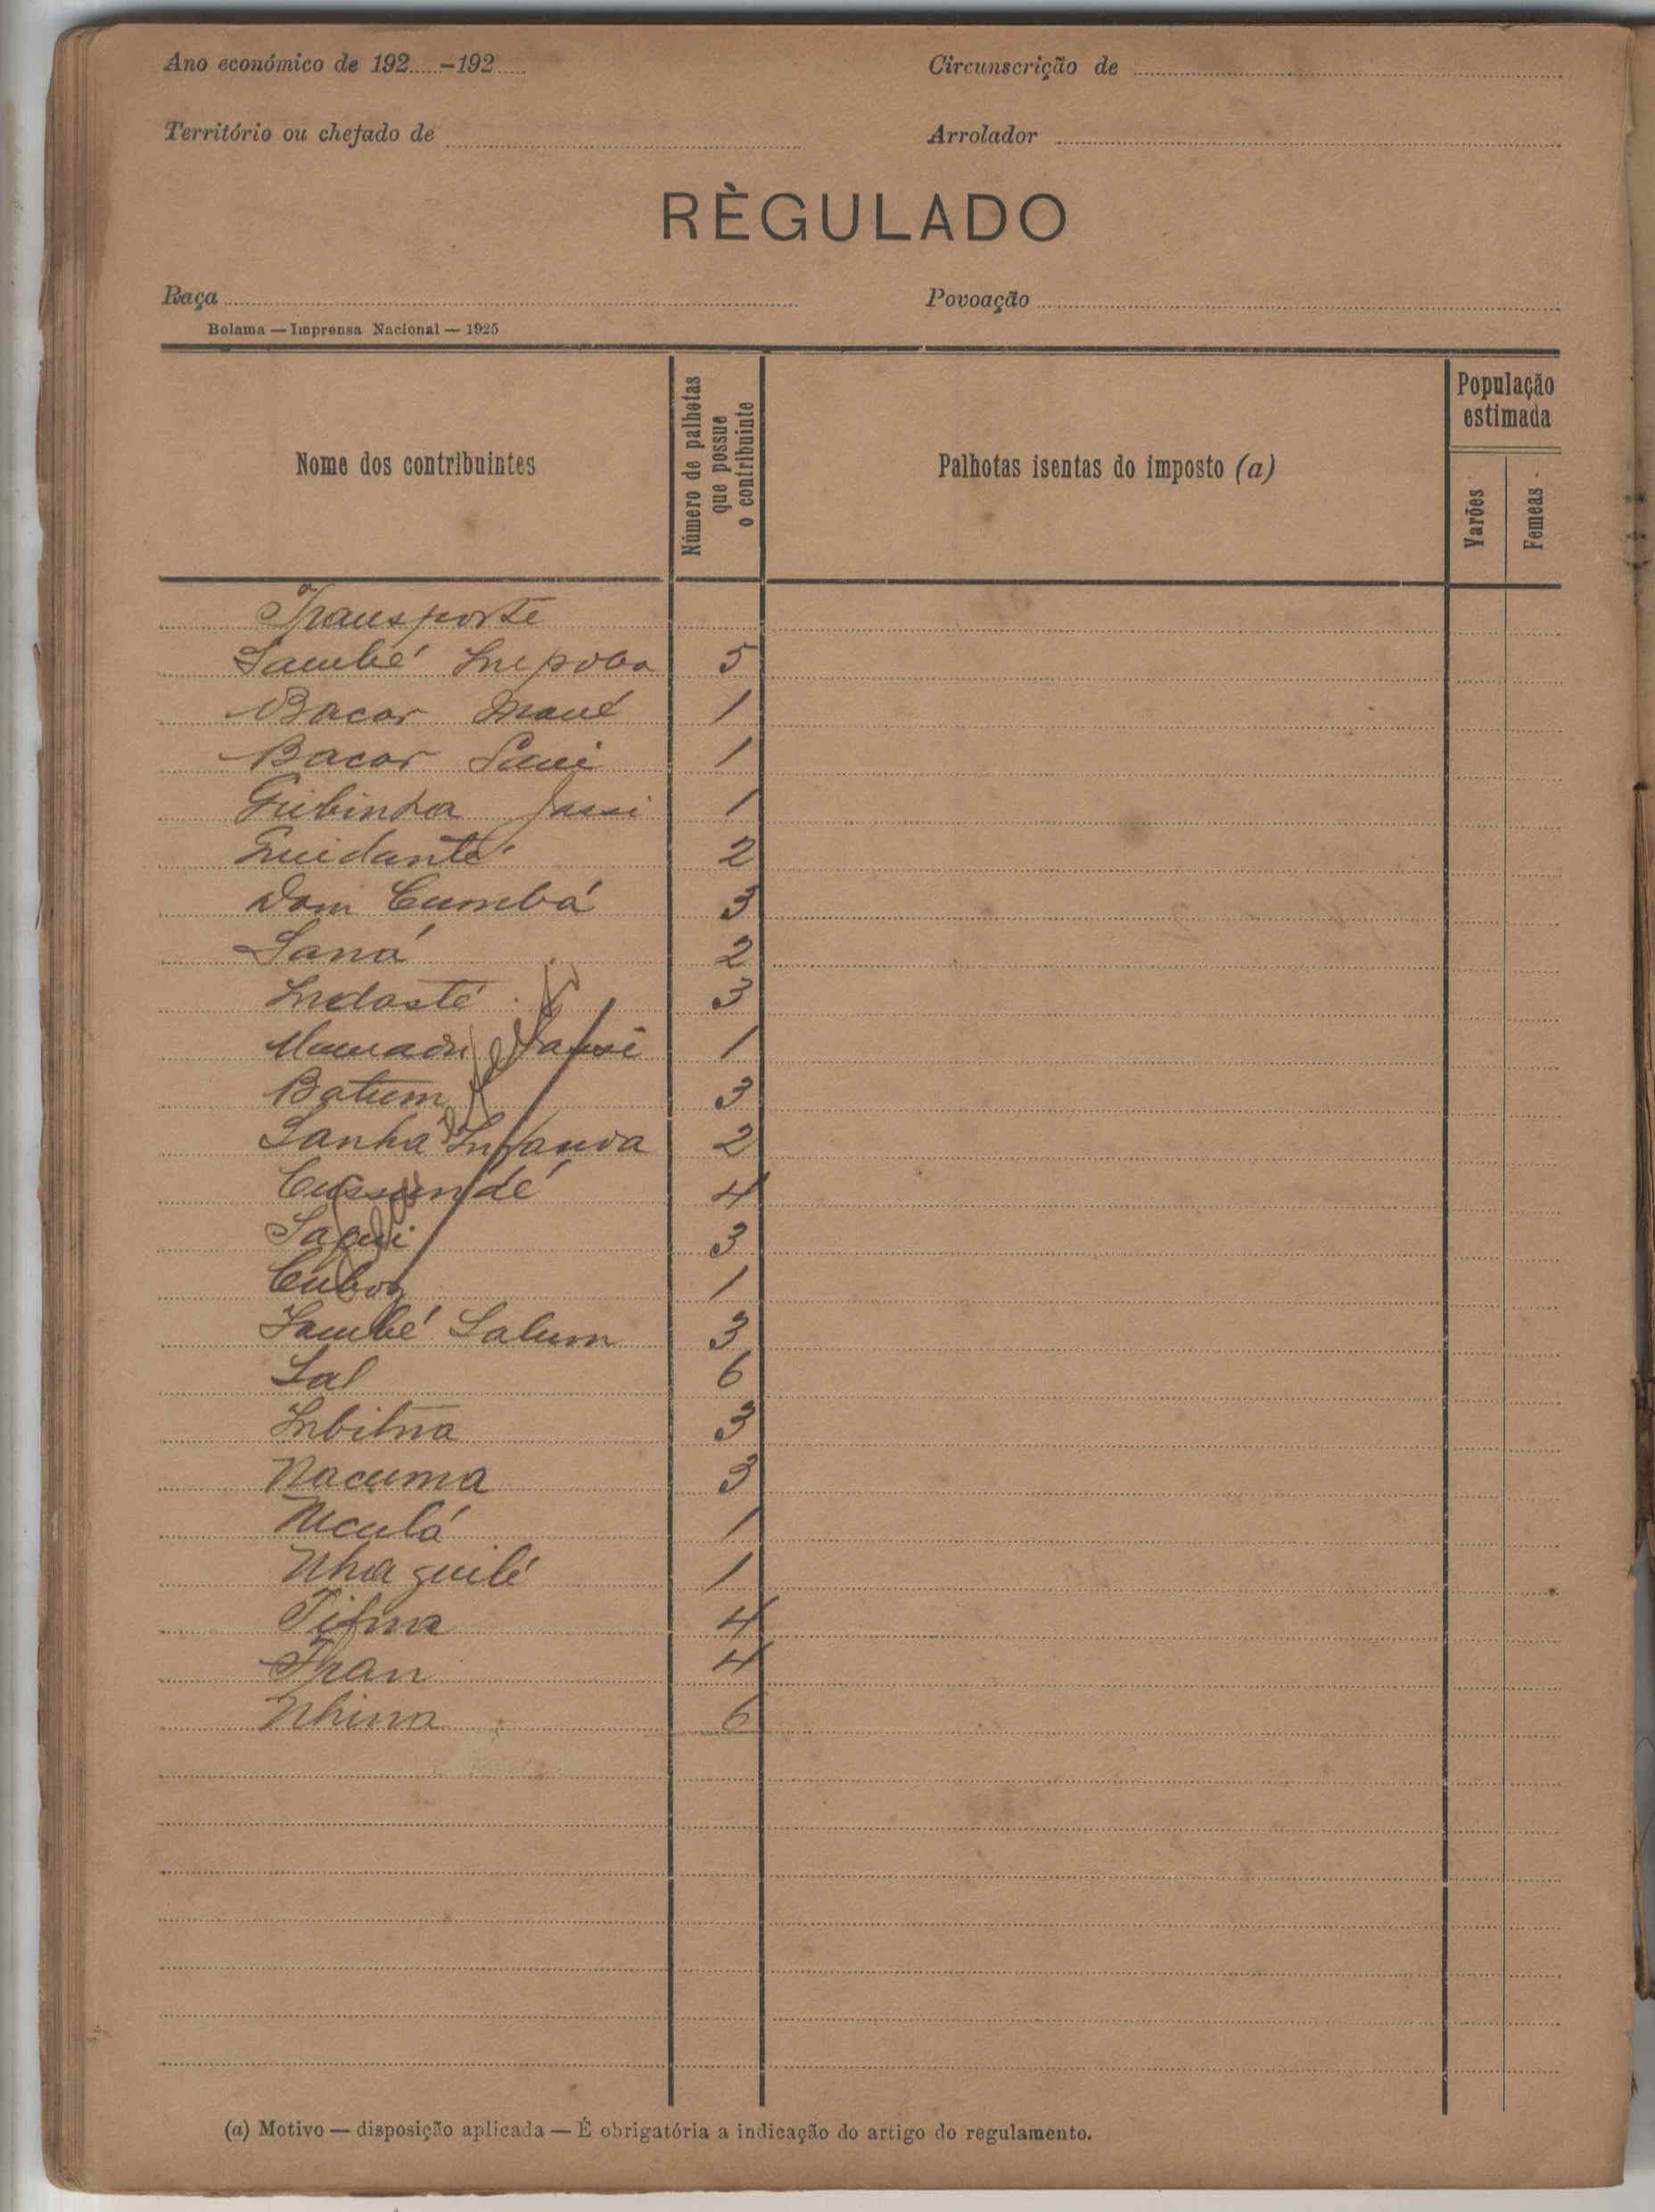 Ano económico de 192.....-192.....
Circunscrição de
Território ou chefado de
Arrolador
RÈGULADO
Raça
Povoação
Bolama — Imprensa Nacional — 1925
Nome dos contribuintes
Número de palhotas que possue o contribuinte
Palhotas isentas do imposto (a)
População estimada
Varões
Femeas
Transporte
Sambé 5
Bacar Mané 1
Bacar Sani 1
1
2
Dom Cumbá 3
Saná 2
Indasté 3
Mamadú 1
Batum 3
Sanhá 2
Cussundé 4
Sagui 3
1
Sambé Salum 3
Sal 6
3
Nacuma 3
Niculá 1
Nhaguilé 1
4
Fran 4
Nhina 6
(a) Motivo — disposição aplicada — É obrigatória a indicação do artigo do regulamento.